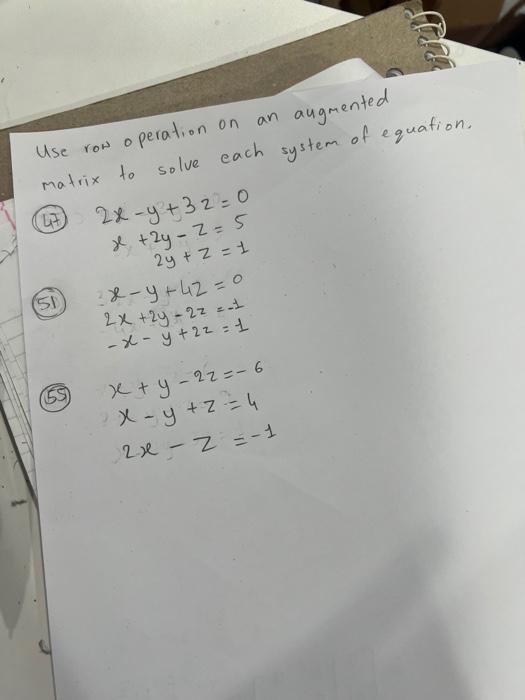 Use row operation on an augmented
matrix to solve each system of equation.
47 2x - y + 3z = 0
x + 2y - z = 5
2y + z = 1
51 x - y + 4z = 0
2x + 2y - 2z = -1
-x - y + 2z = 1
55 x + y - 2z = -6
x - y + z = 4
2x - z = -1